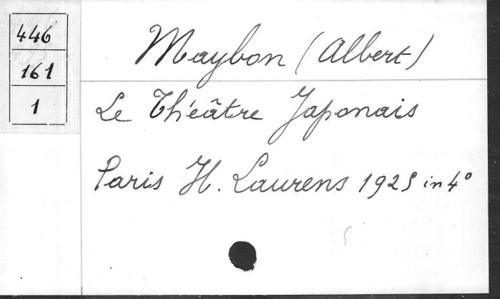 446
161
1
Maybon (Albert)
Le Théâtre Japonais
Paris H. Laurens 1925 in 4°